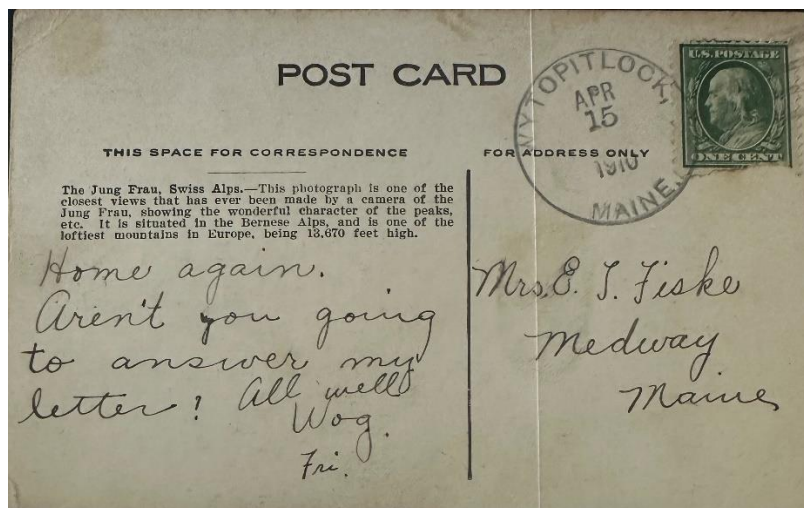 POST CARD
WYTOPITLOCK,
APR
15
1910
MAINE.
U.S. POSTAGE
ONE CENT
THIS SPACE FOR CORRESPONDENCE
FOR ADDRESS ONLY
The Jung Frau, Swiss Alps.—This photograph is one of the
closest views that has ever been made by a camera of the
Jung Frau, showing the wonderful character of the peaks,
etc. It is situated in the Bernese Alps, and is one of the
loftiest mountains in Europe, being 13,670 feet high.
Home again.
Aren't you going
to answer my
letter? All well
Wog.
Fri.
Mrs. E. T. Fiske
Medway
Maine